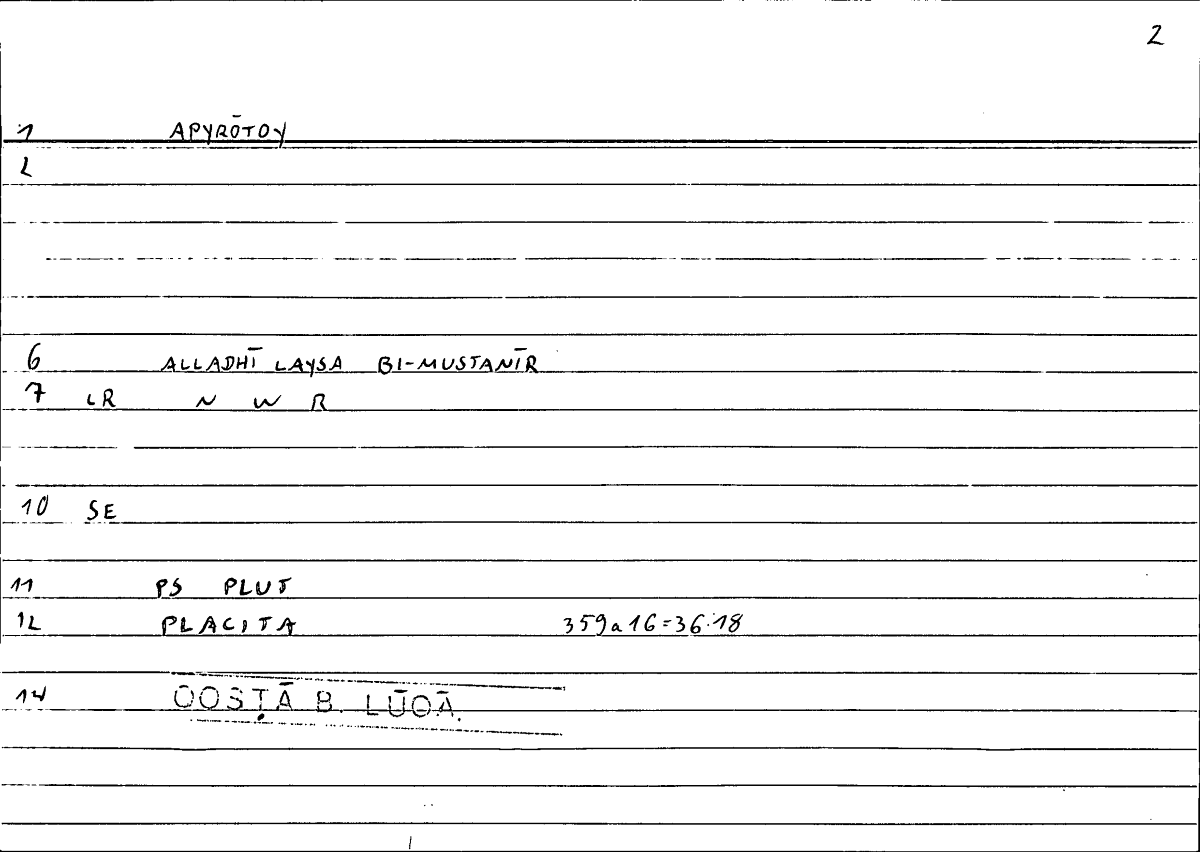 2
1 APYRŌTOY
2
6 ALLADHĪ LAYSA BI-MUSTANĪR
7 LR N W R
10 SE
11 PS PLUT
12 PLACITA 359a16=36.18
14 QOSṬĀ B. LŪQĀ.